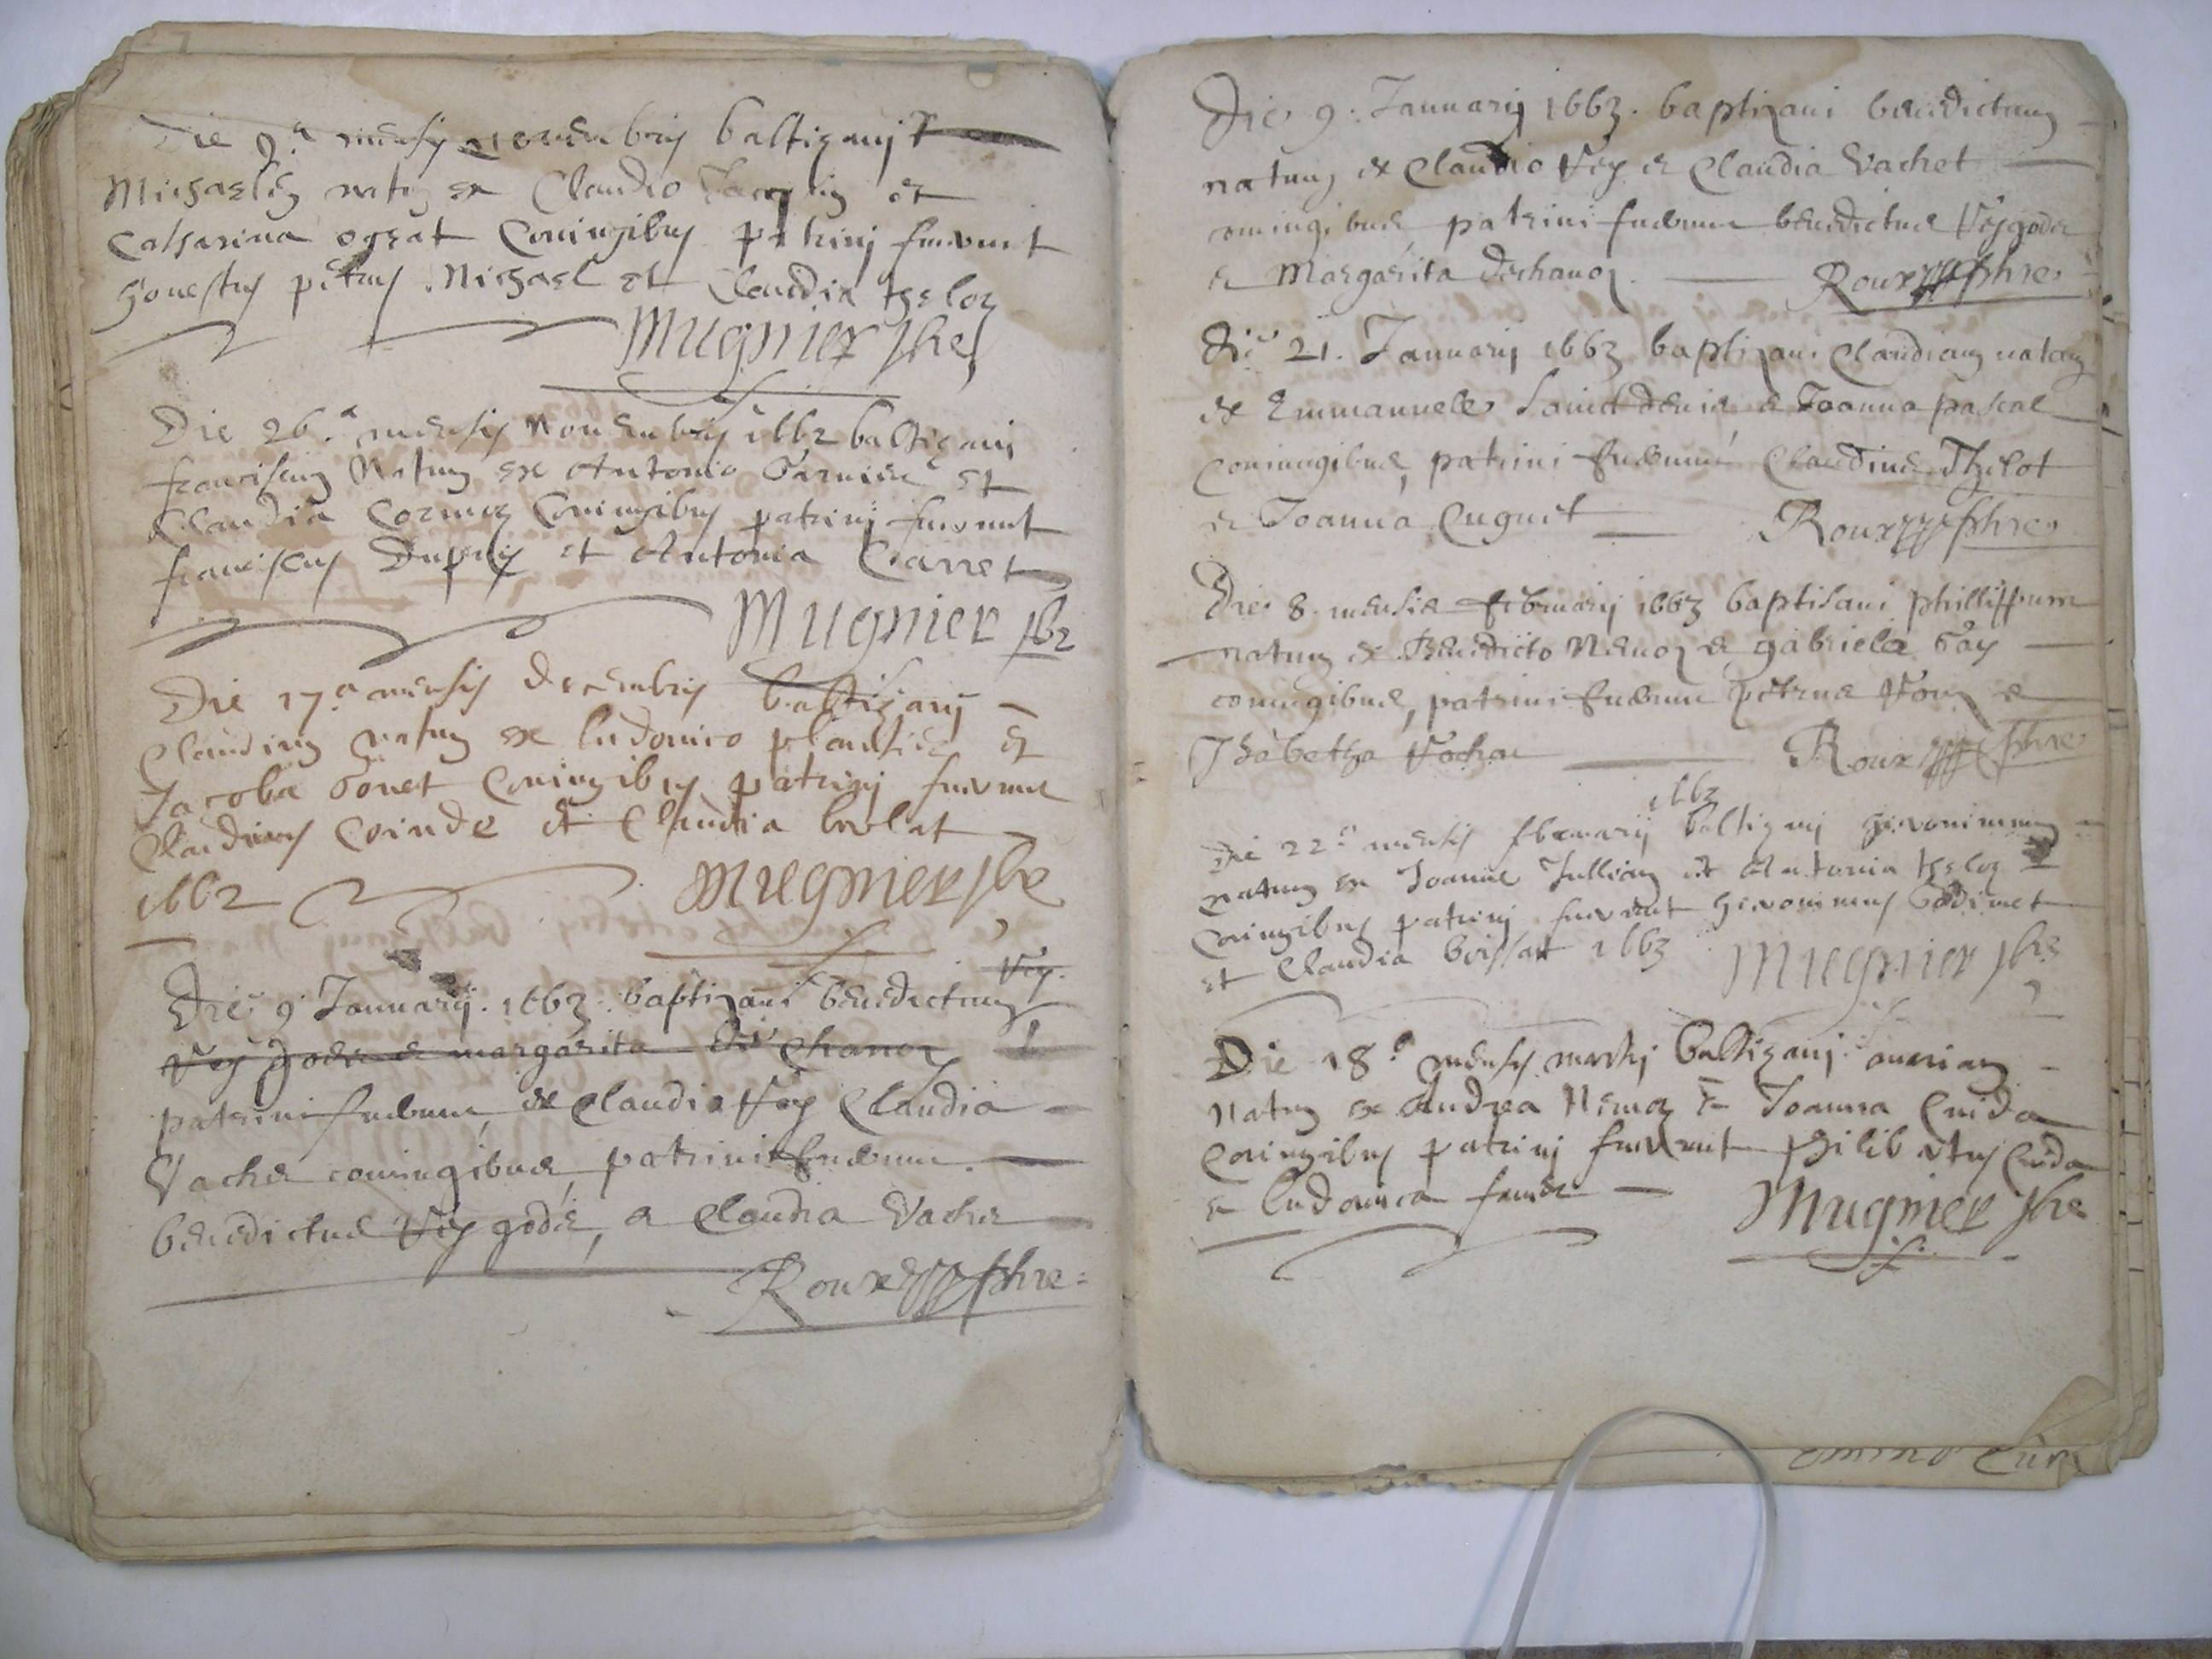 Die 9.a mensis novembris baltizavij
Michaelem natum ex Claudio et
Catharina ogeat Coniugibus patrinj fuerunt
honestus petrus Michael et Claudia theloz
Mugnier pbre
Die 26.a mensis Novembris 1662 baltizavij
franciscum Natum ex Antonio Garnier et
Claudia Cormoz Coniugibus patrinj fuerunt
franciscus Dupuis et Antonia Carret
Mugnier pbr
Die 17.a mensis decembris baltizavij
Claudium natum ex ludovico plantier et
Jacoba Gonet Coniugibus patrinj fuerunt
Claudius Coinde et Claudia
1662 Mugnier pbre
Vey.
Die 9 Januarij. 1663. baptizavi benedictum
Vey godet & margarita de chanoz
patrini fuerunt, ex Claudio Vey Claudia
Vachet coniugibus, patrini fuerunt.
benedictus Vey godet, & Claudia Vachet
Roux pbre
Die 9. Januarij 1663. baptizavi benedictum
natum ex Claudio Vey & Claudia Vachet
coniugibus, patrini fuerunt benedictus Veygodet
& Margarita dechanoz. Roux pbre
Die 21. Januarij 1663 baptizavi Claudiam natam
ex Emmanuele Sainct denis & Joanna pascal
coniugibus, patrini fuerunt Claudius Thelot
& Joanna Cuguet Roux pbre
Die 8. mensis februarij 1663 baptisavi phillippum
natum ex Benedicto Nemoz & gabriela Gay
coniugibus, patrini fuerunt petrus &
Isabetha Vochat Roux pbre
1663
Die 22.a mensis februarij baltizavij hieronimum
natum ex Joanne Jullian et Antonia theloz
Coniugibus patrinj fuerunt hieronimus Godimet
et Claudia boissat 1663 Mugnier pbre
Die 18.a mensis martij baltizavij
Natum ex Andrea Nemoz & Joanna Cuida
Coniugibus patrinj fuerunt philibertus Cuida
& ludovica Mugnier pbre